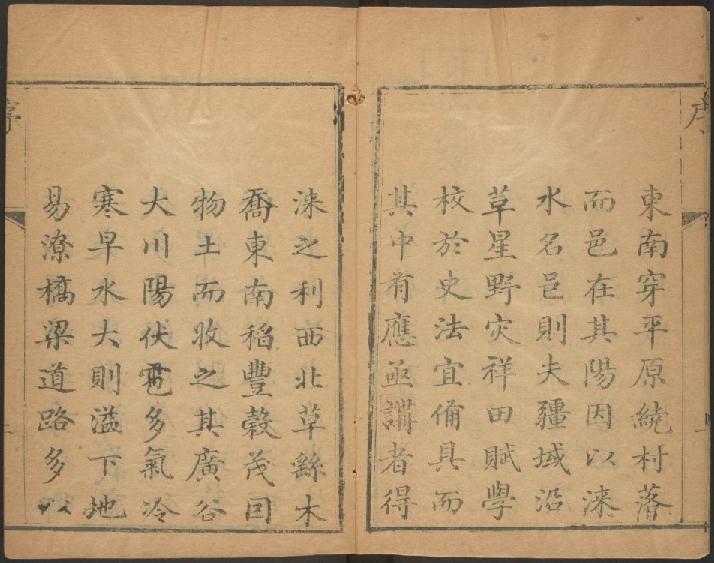 東南穿平原繞村落
而邑在其陽因以淶
水名邑則夫疆域沿
草星野灾祥田賦學
校於史法宜俻具而
其中有應亟講者得
淶之利西北草繇木
喬東南稻豐榖茂囙
物土而收之其廣谷
大川陽伏雹多氣冷
寒早水大則溢下地
易潦橋梁道路多以
序